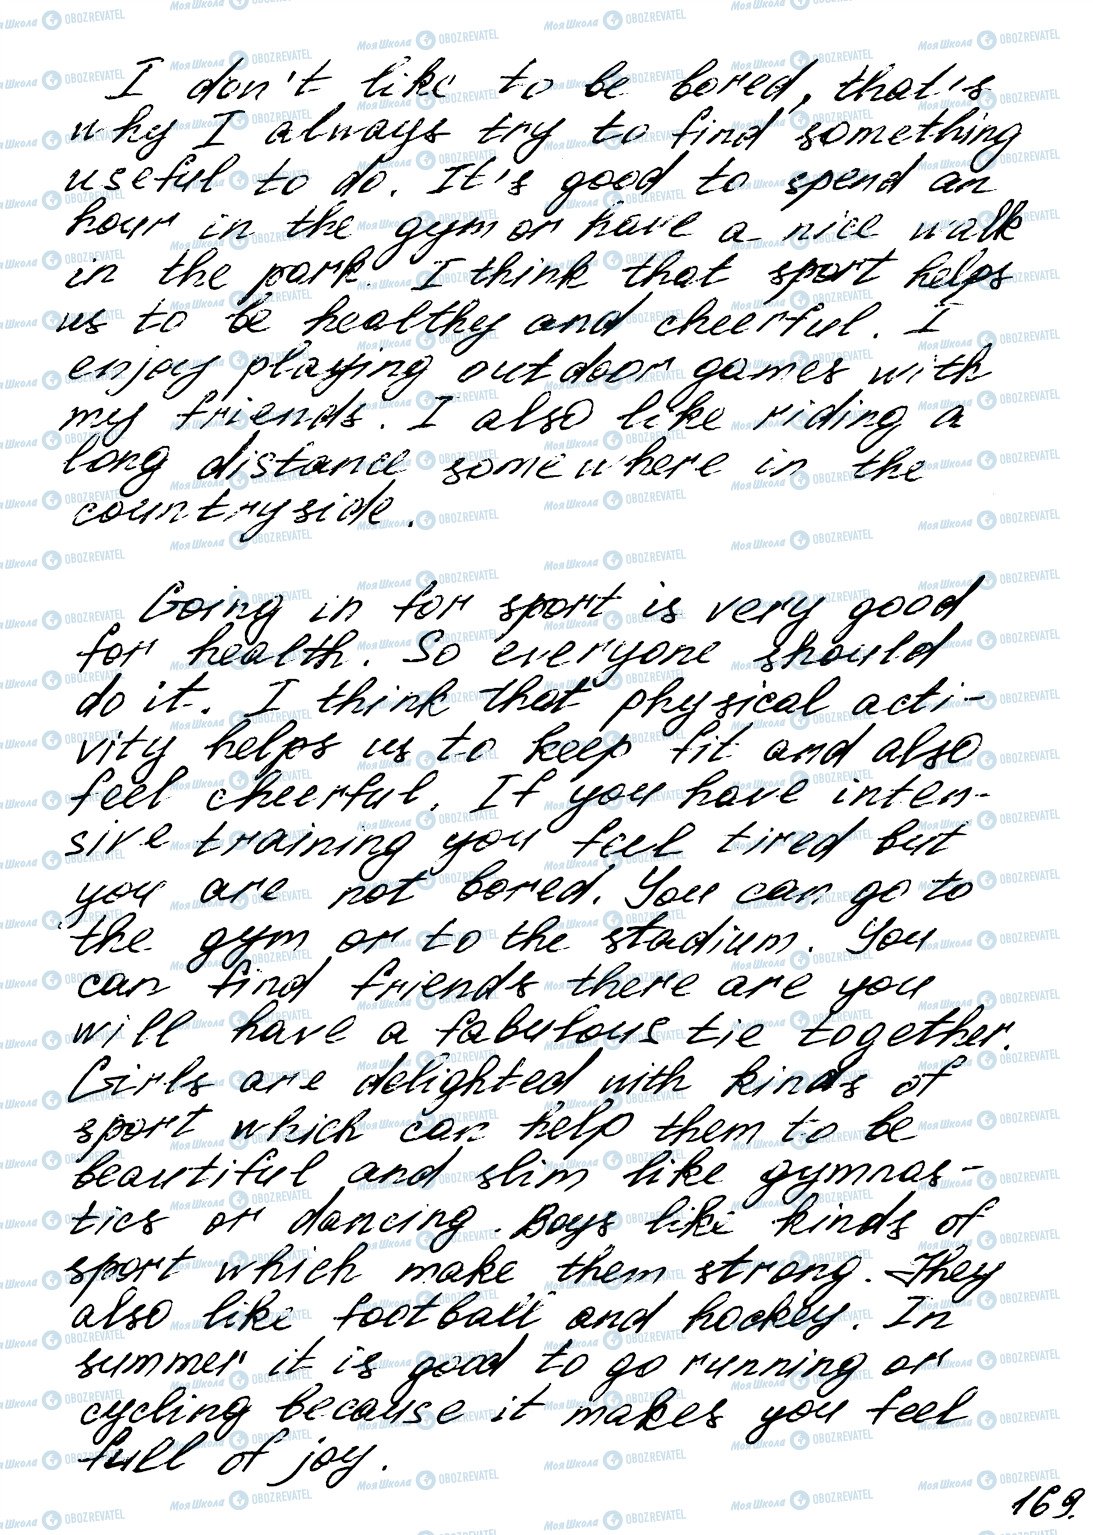 I don't like to be bored, that's
why I always try to find something
useful to do. It's good to spend an
hour in the gym or have a nice walk
in the park. I think that sport helps
us to be healthy and cheerful. I
enjoy playing outdoor games with
my friends. I also like riding a
long distance somewhere in the
countryside.
Going in for sport is very good
for health. So everyone should
do it. I think that physical acti-
vity helps us to keep fit and also
feel cheerful. If you have inten-
sive training you feel tired but
you are not bored. You can go to
the gym or to the stadium. You
can find friends there are you
will have a fabulous tie together.
Girls are delighted with kinds of
sport which can help them to be
beautiful and slim like gymnas-
tics or dancing. Boys like kinds of
sport which make them strong. They
also like football and hockey. In
summer it is good to go running or
cycling because it makes you feel
full of joy.
169.
МояШкола OBOZREVATEL